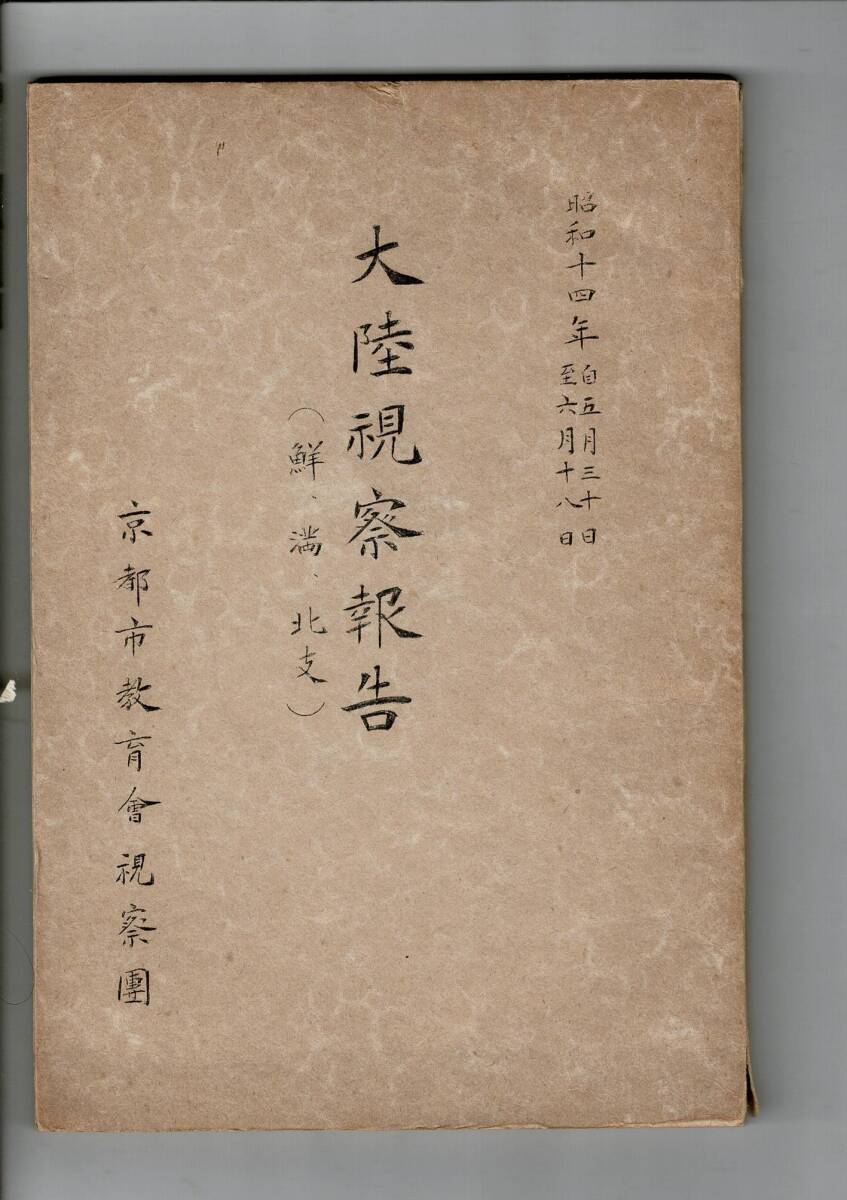 昭和十四年
自五月三十日
至六月十八日
大陸視察報告
（鮮、満、北支）
京都市教育會視察團